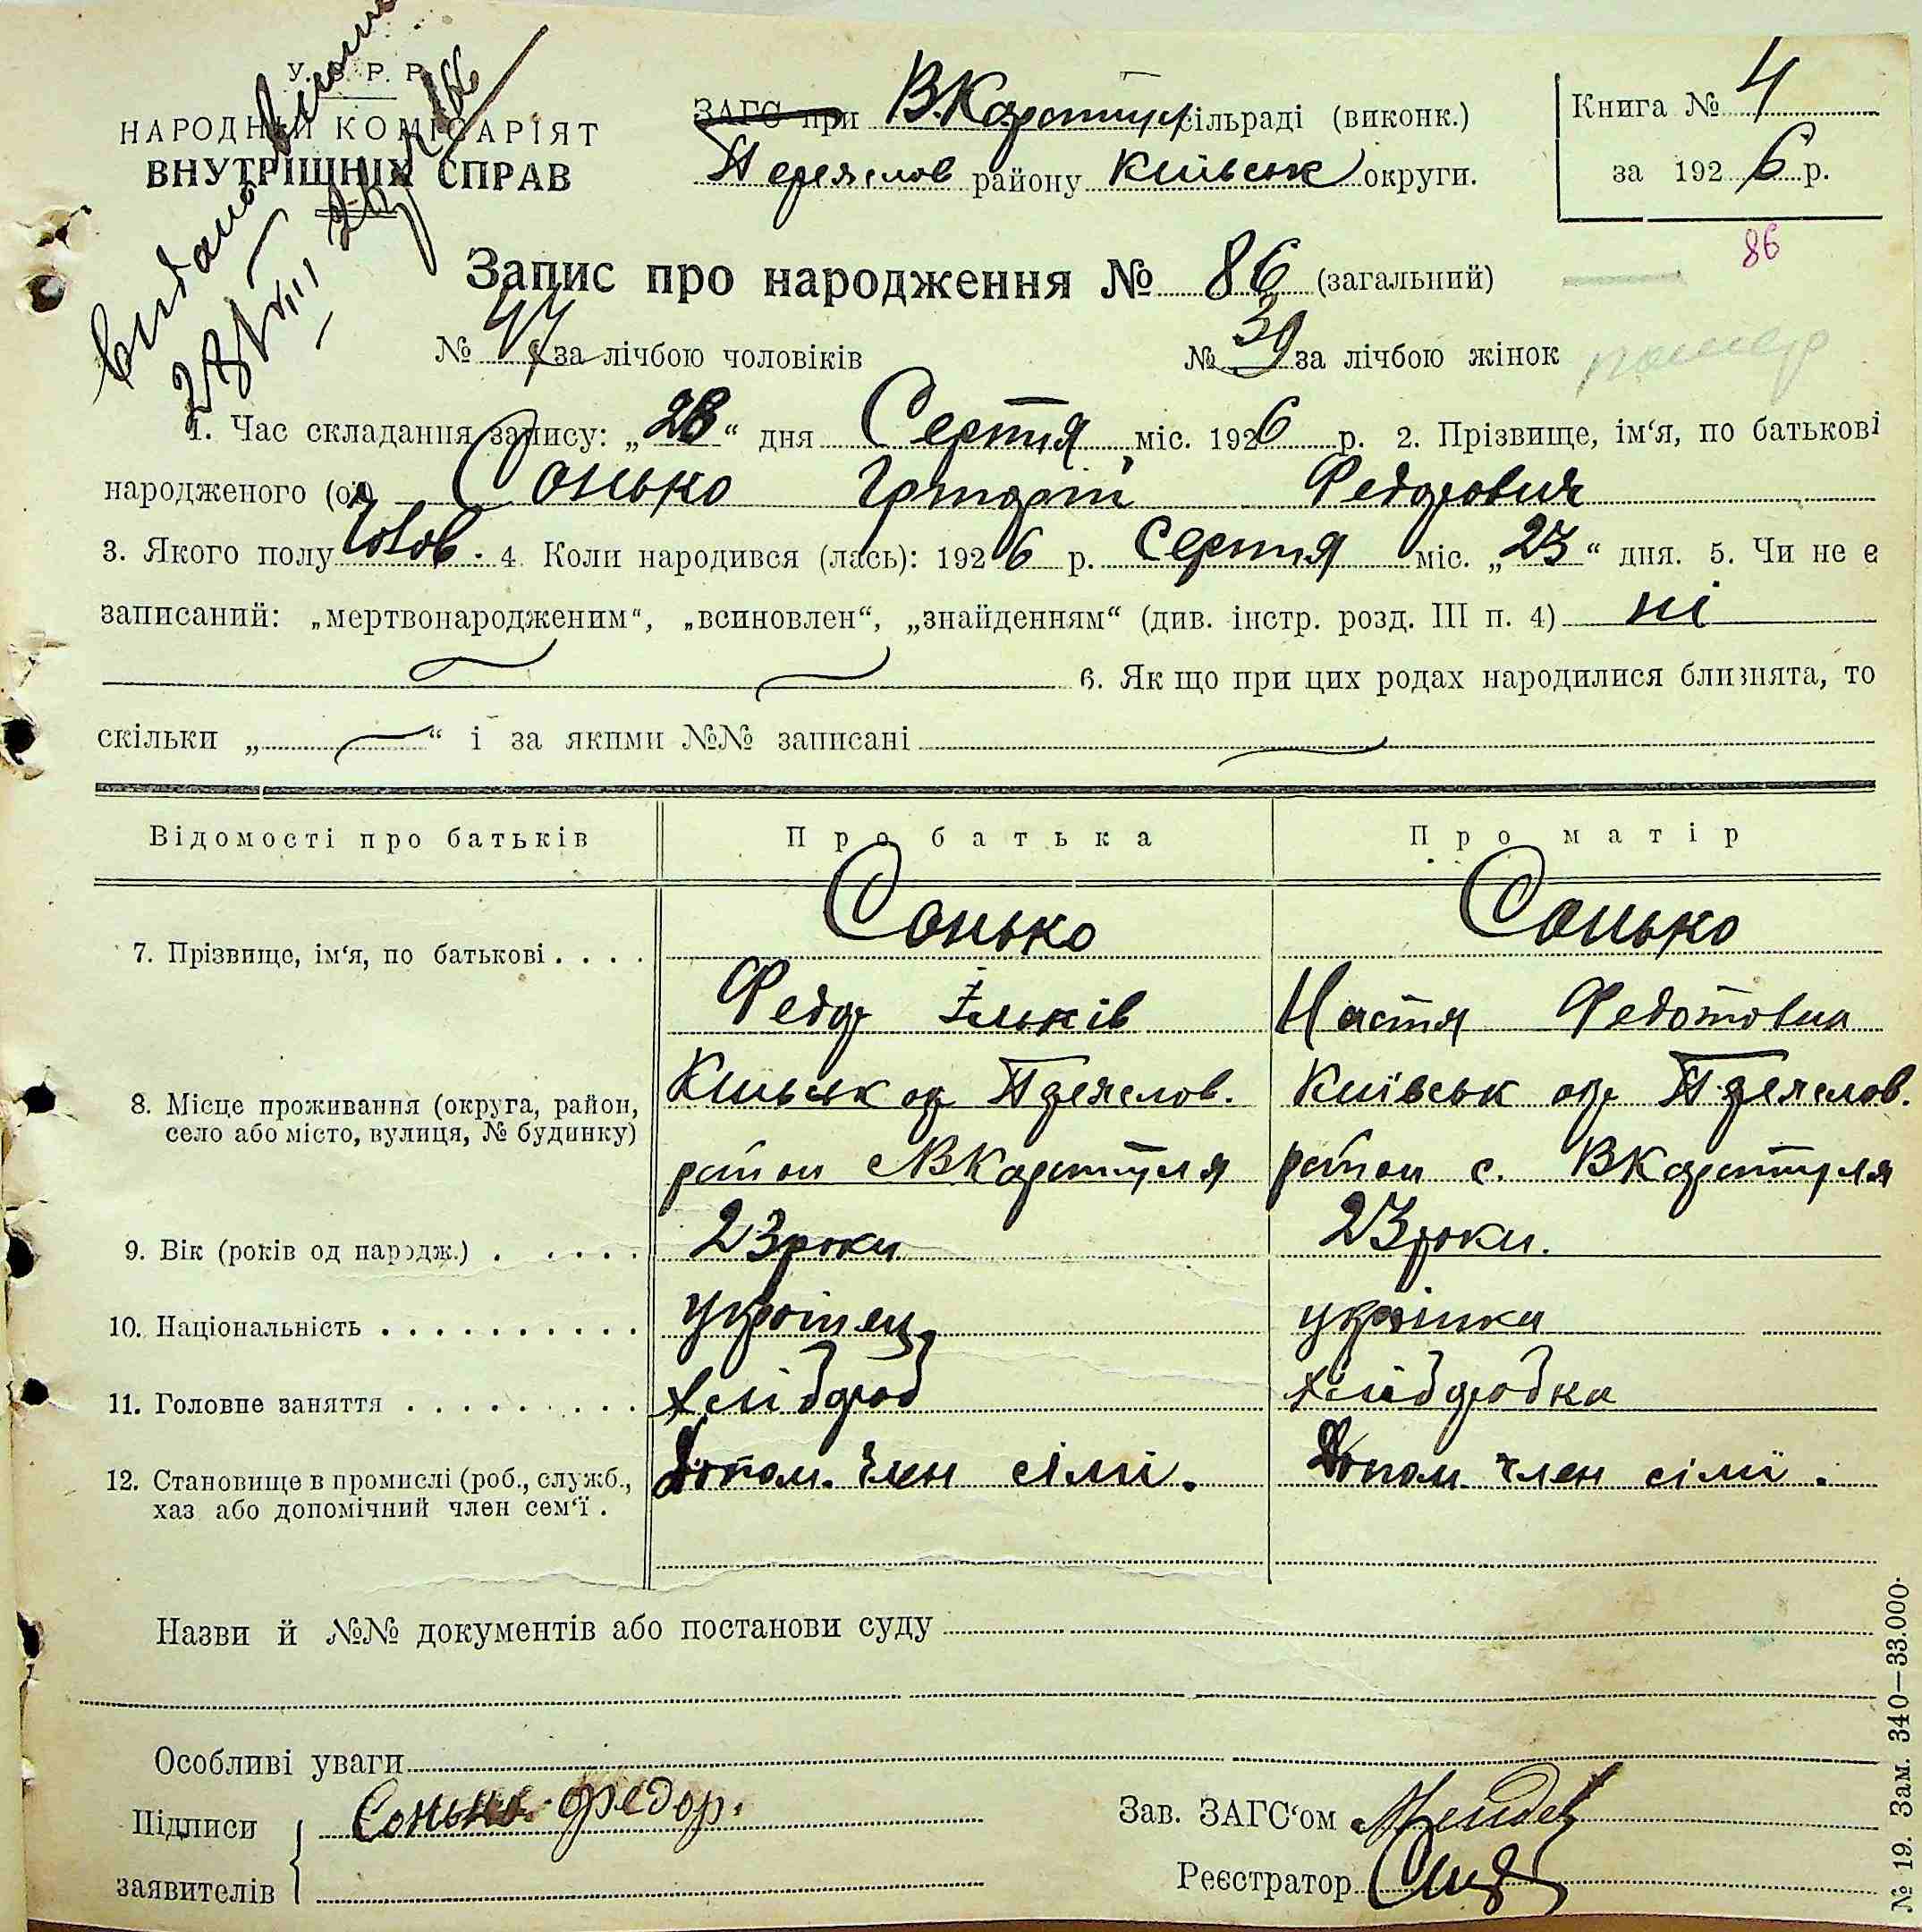 У. С. Р. Р.
НАРОДНІЙ КОМІСАРІЯТ
ВНУТРІШНІХ СПРАВ
видано
28/VIII 26 р
ЗАГС при В.Каратул сільраді (виконк.)
Переяслов району Київськ округи.
Книга № 4
за 1926 р.
86
Запис про народження № 86 (загальний)
№ 47 за лічбою чоловіків № 39 за лічбою жінок
помер
1. Час складання запису: „28“ дня Серпня міс. 1926 р. 2. Прізвище, ім‘я, по батькові
народженого (ої) Сонько Григорій Федорович
3. Якого полу Чолов. 4. Коли народився (лась): 1926 р. Серпня міс. „23“ дня. 5. Чи не є
записаний: „мертвонародженим“, „всиновлен“, „знайденням“ (див. інстр. розд. III п. 4) ні
6. Як що при цих родах народилися близнята, то
скільки „ “ і за якими №№ записані
Відомості про батьків Про батька Про матір
7. Прізвище, ім‘я, по батькові . . . . Сонько Сонько
Федор Ільків Настя Федотовна
8. Місце проживання (округа, район, село або місто, вулиця, № будинку) Київськ ок Переяслов. Київськ окр Переяслов.
район с ВКаратуля район с. ВКаратуля
9. Вік (років од народж.) . . . . . 23 роки 23 роки.
10. Національність . . . . . . . . . . українец українка
11. Головне заняття . . . . . . . . . хлібороб хліборобка
12. Становище в промислі (роб., служб., хаз або допомічний член сем‘ї . Допом. член сімї. Допом. член сімї.
Назви й №№ документів або постанови суду
Особливі уваги
Підписи заявителів Сонько Федор.
Зав. ЗАГС‘ом
Реєстратор
№ 19. Зам. 340—33.000.